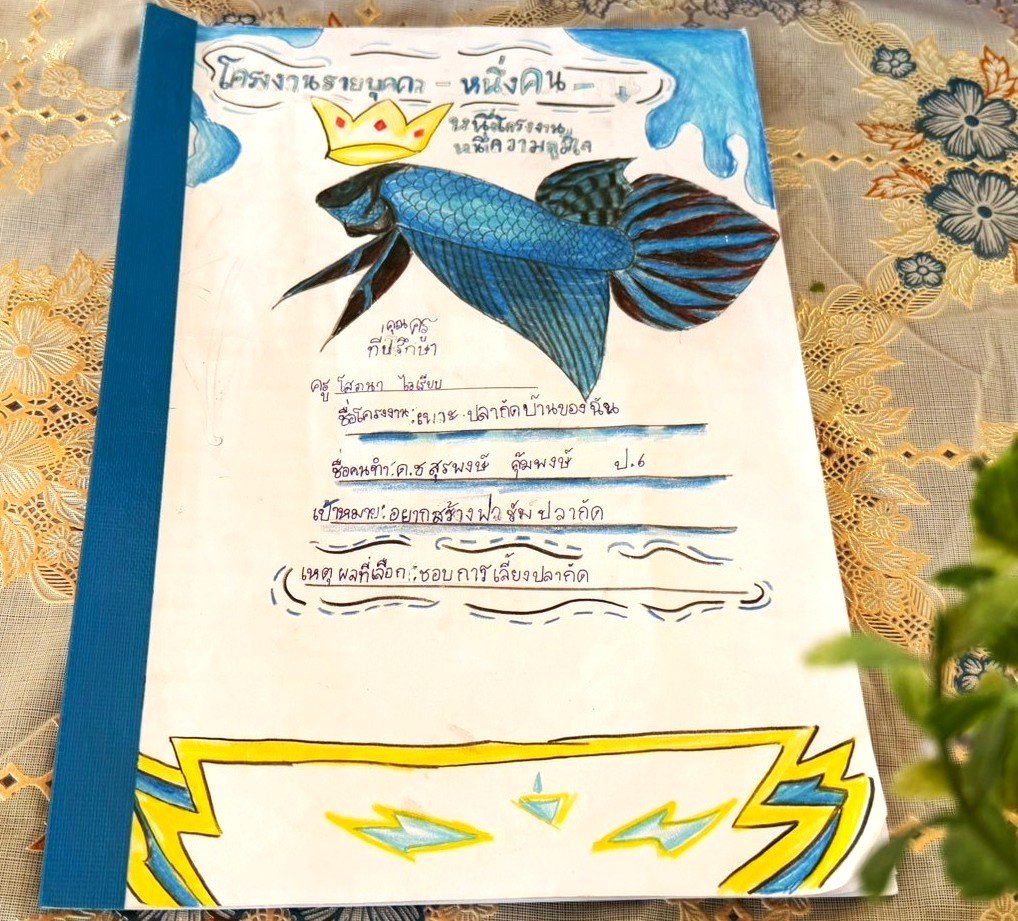 โครงงานรายบุคคล - หนึ่งคน -
หนึ่งโครงงาน
หนึ่งความภูมิใจ
คุณครู
ที่ปรึกษา
ครู โสภนา
ชื่อโครงงาน : เพาะ ปลากัดบ้านของฉัน
ชื่อคนทำ : ด.ช สุรพงษ์ คุ้มพงษ์ ป.6
เป้าหมาย : อยากสร้างฟาร์มปลากัด
เหตุผลที่เลือก : ชอบการเลี้ยงปลากัด